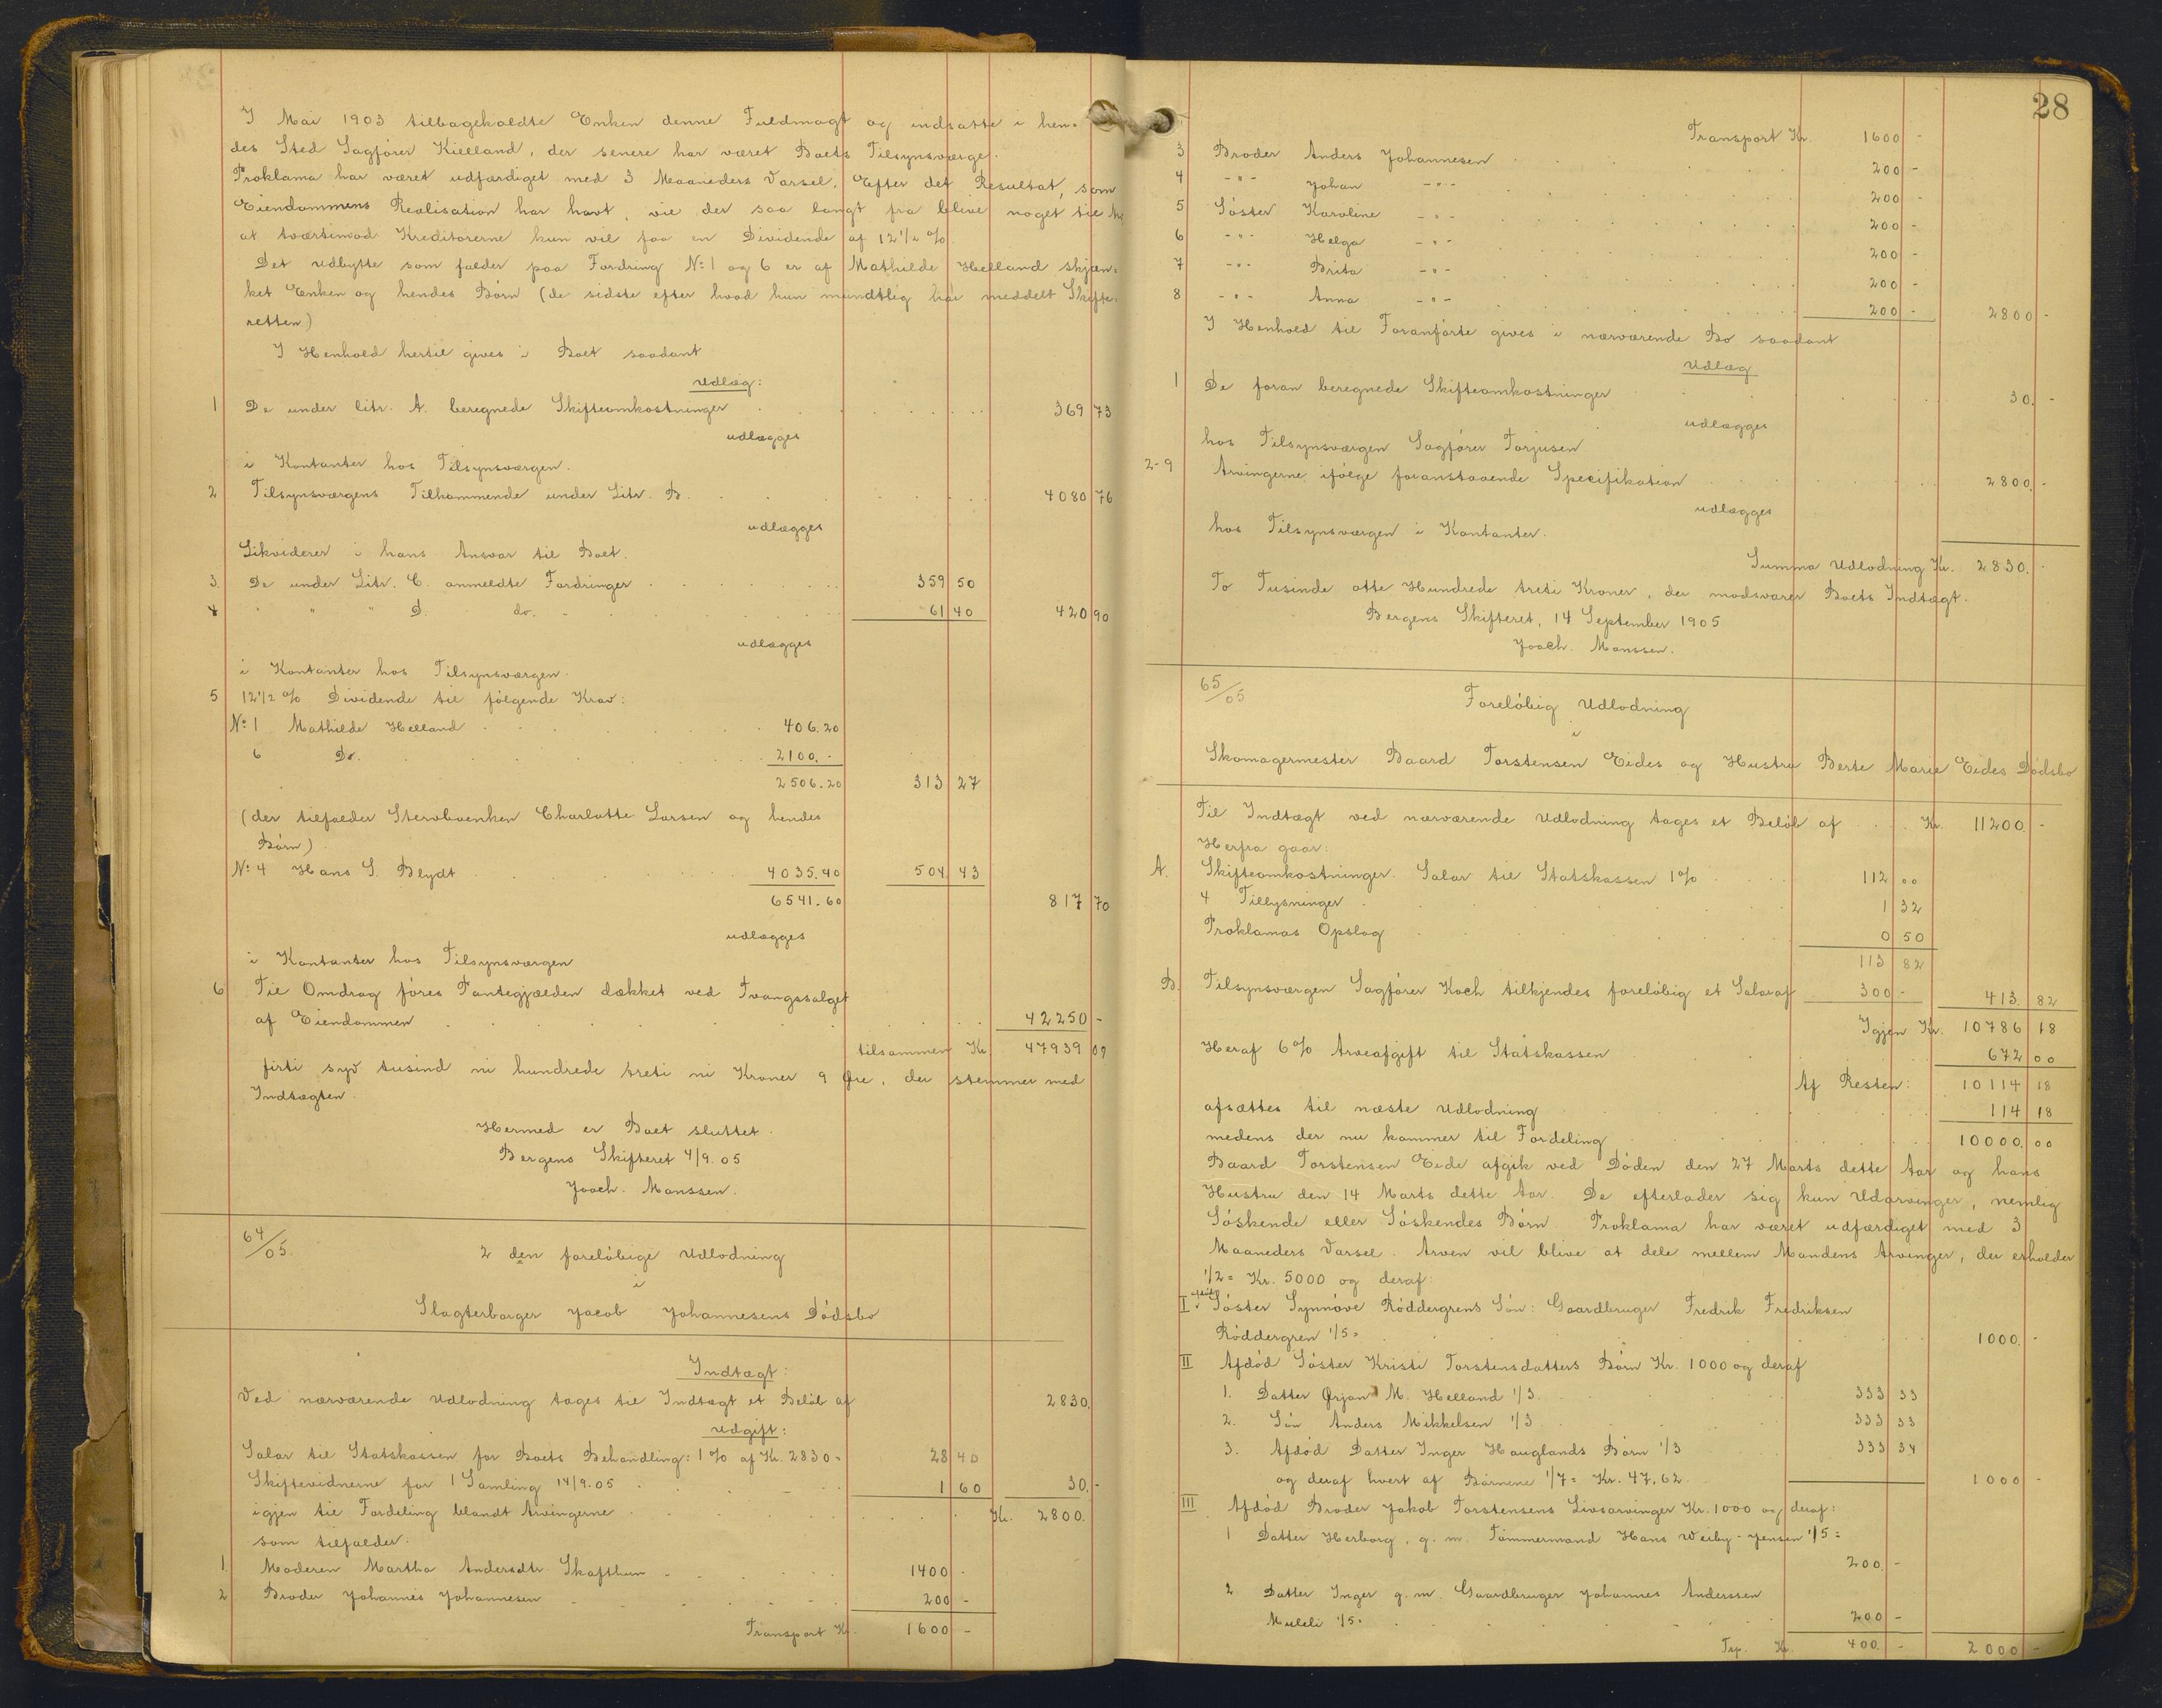 I Mai 1903 tilbagekaldte Enken denne Fuldmagt og indsatte i hen-
des Sted Sagfører Kielland, der senere har været Boets Tilsynsværge.
Proklama har været udfærdiget med 3 Maaneders Varsel. Efter det Resultat, som
Eiendommens Realisation har havt, vil der saa langt fra blive noget til
at tværtimod Kreditorerne kun vil faa en Dividende af 12 1/2 %.
Det Udbytte som falder paa Fordring No 1 og 6 er af Mathilde Helland skjæn-
ket Enken og hendes Børn (de sidste efter hvad hun mundtlig har meddelt Skifte-
retten)
I Henhold hertil gives i Boet saadant
Udlæg:
1 De under litr. A. beregnede Skifteomkostninger 369 73
udlægges
i Kontanter hos Tilsynsværgen.
2 Tilsynsværgens Tilkommende under Litr. B. 4080 76
udlægges
Likviderer i hans Ansvar til Boet.
3. De under Litr. C. anmeldte Fordringer 359 50
4 " " " D. do. 61 40 420 90
udlægges
i Kontanter hos Tilsynsværgen.
5 12 1/2 % Dividende til følgende Krav:
No 1 Mathilde Helland 406.20
6 Do. 2100.-
2506.20 313 27
(der tilfalder Stervboenken Charlotte Larsen og hendes
Børn)
No 4 Hans S. Blydt 4035.40 504 43
6541.60 817 70
udlægges
i Kontanter hos Tilsynsværgen
6 Til Omdrag føres Pantegjælden dækket ved Tvangssalget
af Eiendommen 42250 -
tilsammen Kr. 47939 09
firti syv tusind ni hundrede treti ni Kroner 9 Øre, der stemmer med
Indtægten.
Hermed er Boet sluttet.
Bergens Skifteret 4/9. 05
Joach. Monssen.
64/05.
2den foreløbige Udlodning
i
Slagterborger Jacob Johannesens Dødsbo
Indtægt:
Ved nærværende Udlodning tages til Indtægt et Beløb af 2830.
Udgift:
Salar til Statskassen for Boets Behandling: 1 % af Kr. 2830- 28 40
Skiftevidnerne for 1 Samling 14/9.05 1 60 30. -
igjen til Fordeling blandt Arvingerne Kr. 2800.
som tilfalder.
1. Moderen Martha Andersdtr. Skafthun 1400 -
2 Broder Johannes Johannesen 200 -
Transport Kr. 1600 -
28
Transport Kr. 1600 -
3 Broder Anders Johannesen 200 -
4 -"- Johan -"- 200 -
5 Søster Karoline -"- 200 -
6 -"- Helga -"- 200 -
7 -"- Brita -"- 200 -
8 -"- Anna -"- 200 - 2800 -
I Henhold til Foranførte gives i nærværende Bo saadant
Udlæg
1 De foran beregnede Skifteomkostninger 30. -
udlægges
hos Tilsynsværgen Sagfører Torjusen
2-9 Arvingerne ifølge foranstaaende Specifikation 2800. -
udlægges
hos Tilsynsværgen i Kontanter.
Summa Udlodning Kr. 2830. -
To Tusinde otte Hundrede treti Kroner, der modsvarer Boets Indtægt.
Bergens Skifteret, 14 September 1905
Joach. Monssen.
65/05
Foreløbig Udlodning
i
Skomagermester Baard Torstensen Eides og Hustru Berte Marie Eides Dødsbo
Til Indtægt ved nærværende Udlodning tages et Beløb af Kr. 11200. -
Herfra gaar:
A. Skifteomkostninger. Salar til Statskassen 1 % 112 00
4 Tillysninger 1 32
Proklamas Opslag 0 50
113 82
B. Tilsynsværgen Sagfører Koch tilkjendes foreløbig et Salar af 300 - 413. 82
Igjen Kr. 10786 18
Heraf 6 % Arveafgift til Statskassen 672 00
Af Resten: 10114 18
afsættes til næste Udlodning 114 18
medens der nu kommer til Fordeling 10000. 00
Baard Torstensen Eide afgik ved Døden den 27 Marts dette Aar og hans
Hustru den 14 Marts dette Aar. De efterlader sig kun Udarvinger, nemlig
Søskende eller Søskendes Børn. Proklama har været udfærdiget med 3
Maaneders Varsel. Arven vil blive at dele mellem Mandens Arvinger, der erholder
1/2 = Kr. 5000 og deraf:
I afdød Søster Synnøve Røddergrens Søn: Gaardbruger Fredrik Fredriksen
Røddergren 1/5 = 1000. -
II Afdød Søster Kristi Torstensdatters Børn Kr. 1000 og deraf
1. Datter Ørjan M. Helland 1/3 333 33
2. Søn Anders Mikkelsen 1/3 333 33
3. Afdød Datter Inger Hauglands Børn 1/3 333 34
og deraf hvert af Børnene 1/7 = Kr. 47.62 1000 -
III Afdød Broder Jakob Torstensens Livsarvinger Kr. 1000 og deraf:
1 Datter Herborg, g. m. Tømmermand Hans Weiby-Jensen 1/5 =
200. -
2 Datter Inger g. m. Gaardbruger Johannes Anderssen
Muleli 1/5 = 200 -
Trp. Kr. 400. - 2000 -